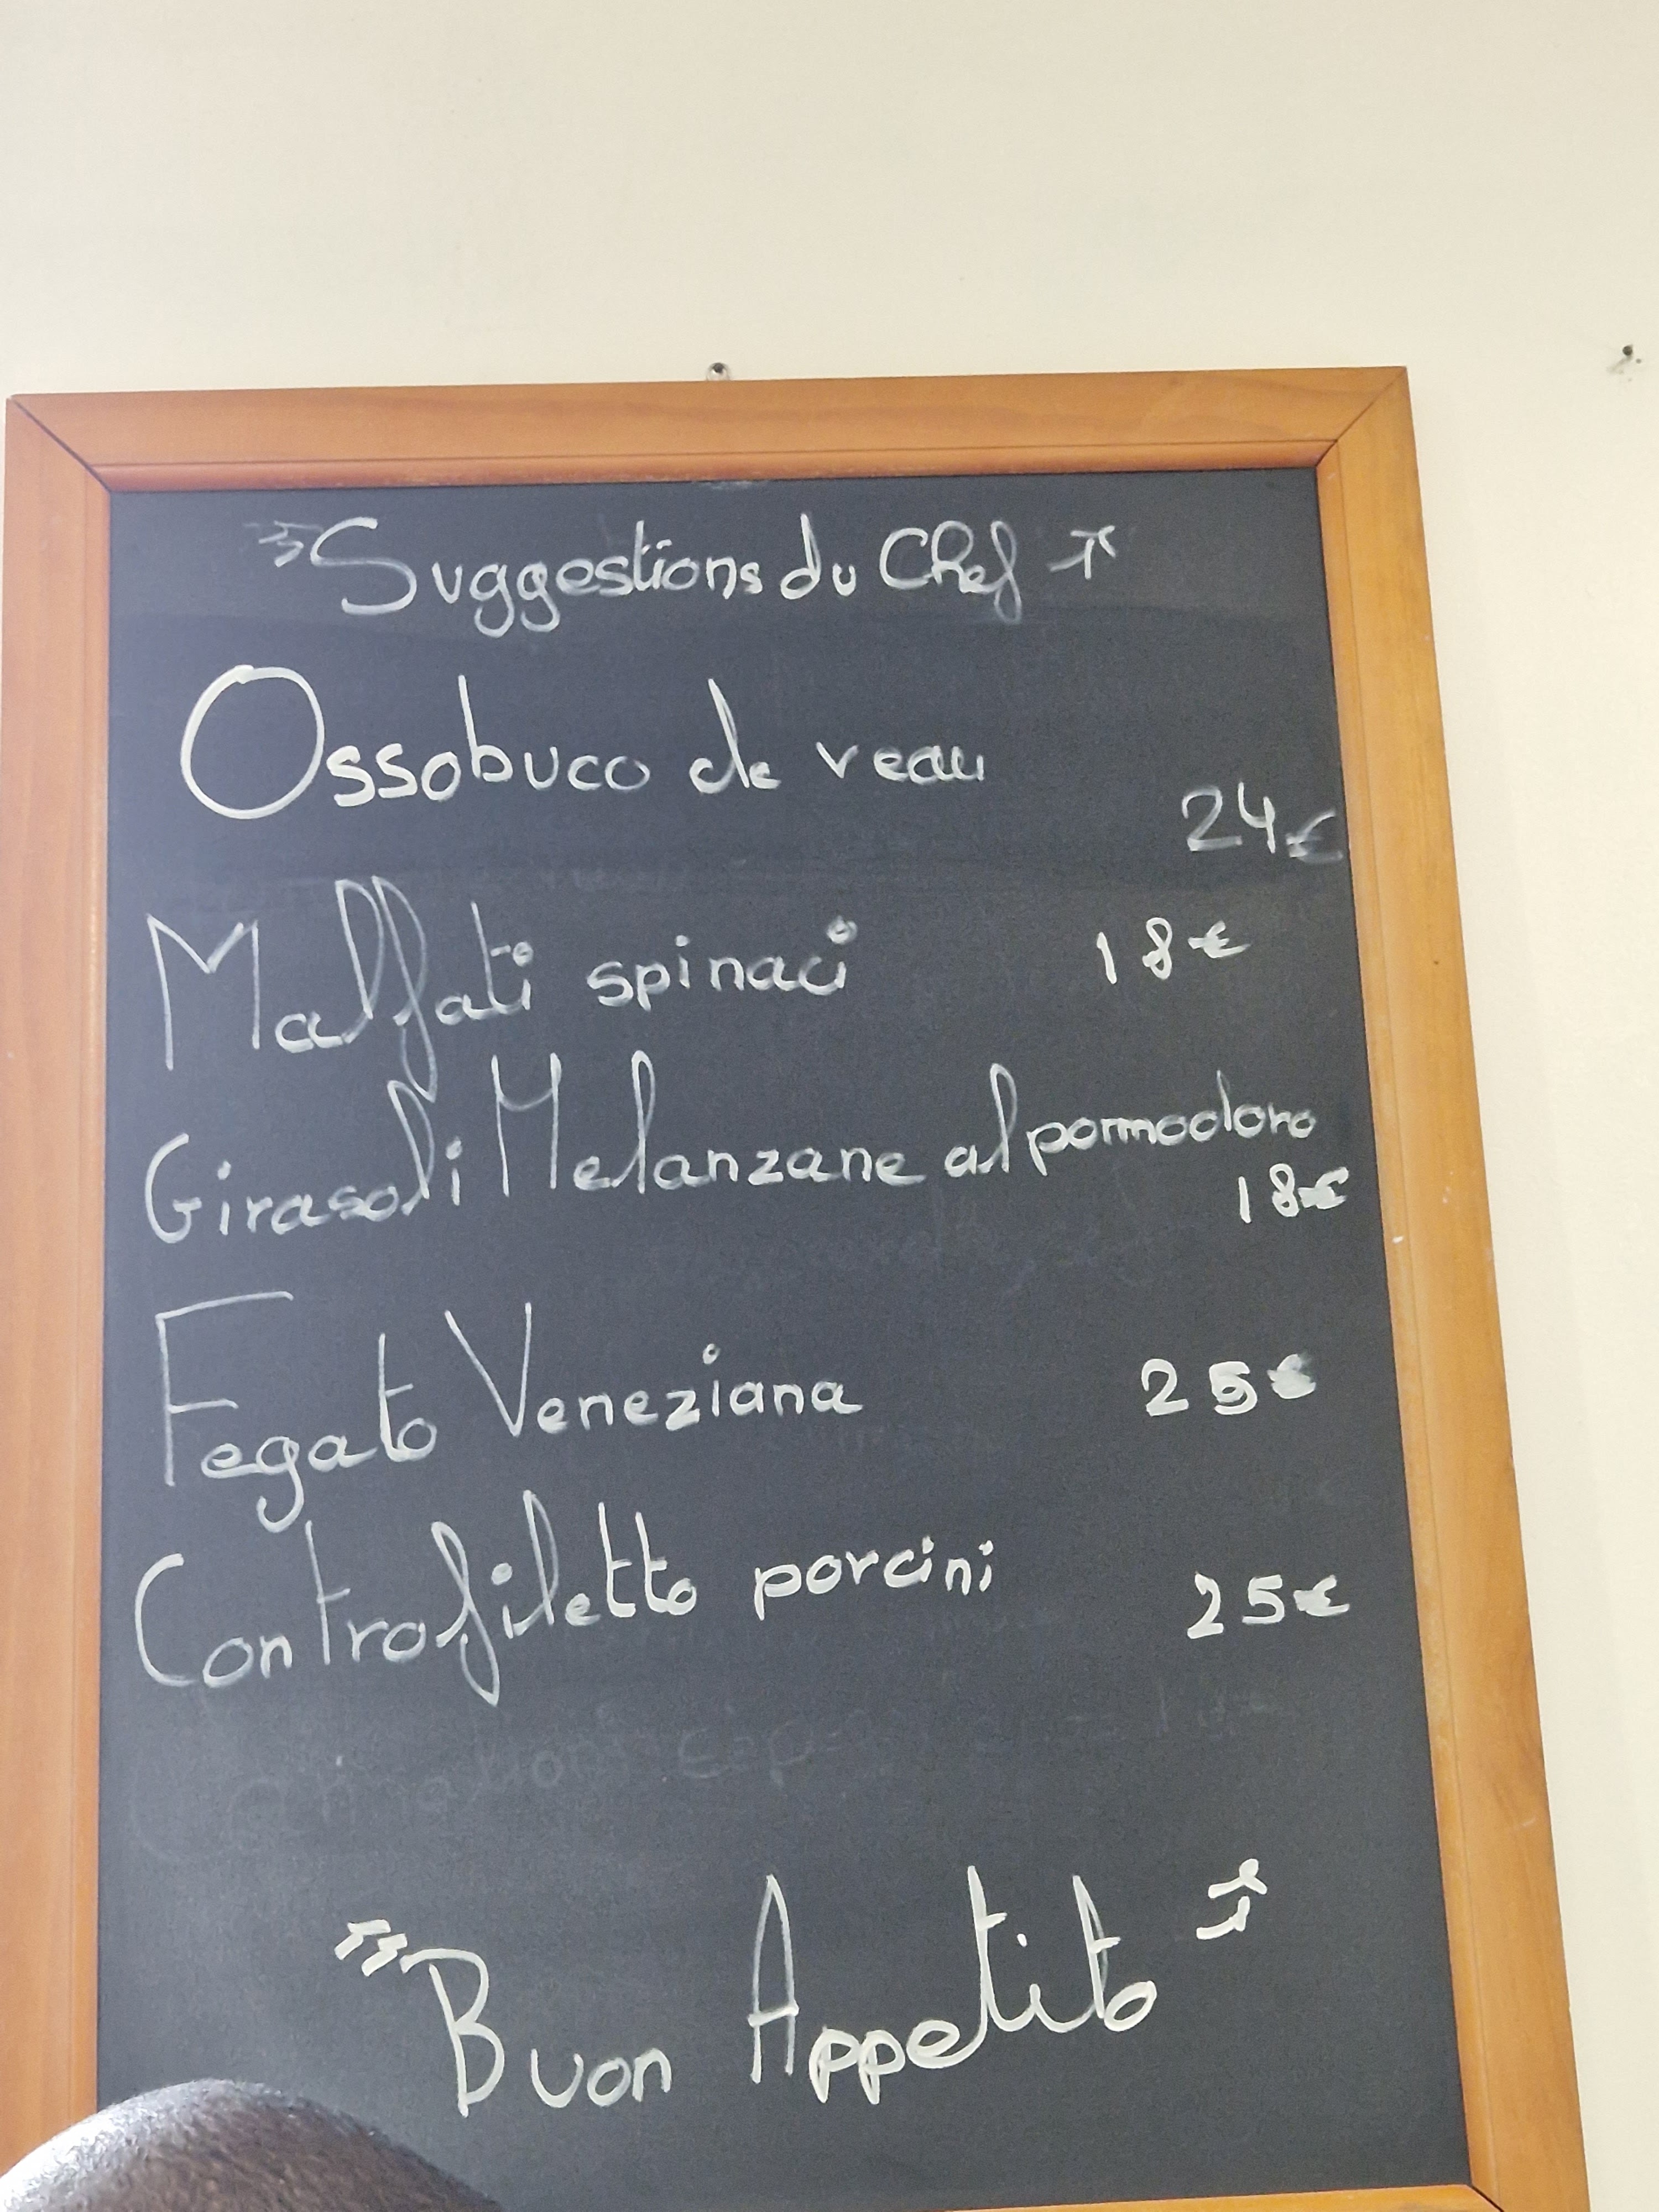 Suggestions du Chef
Ossobuco de veau
24€
Malfati spinaci 18€
Girasoli Melanzane al pomodoro
18€
Fegato Veneziana 25€
Controfiletto porcini 25€
Buon Appetito